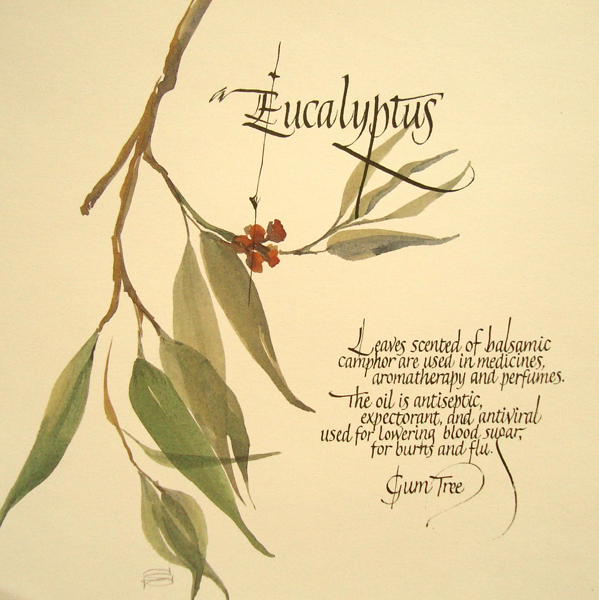 Eucalyptus
Leaves scented of balsamic
camphor are used in medicines,
aromatherapy and perfumes.
The oil is antiseptic,
expectorant, and antiviral
used for lowering blood sugar,
for burns and flu.
Gum Tree